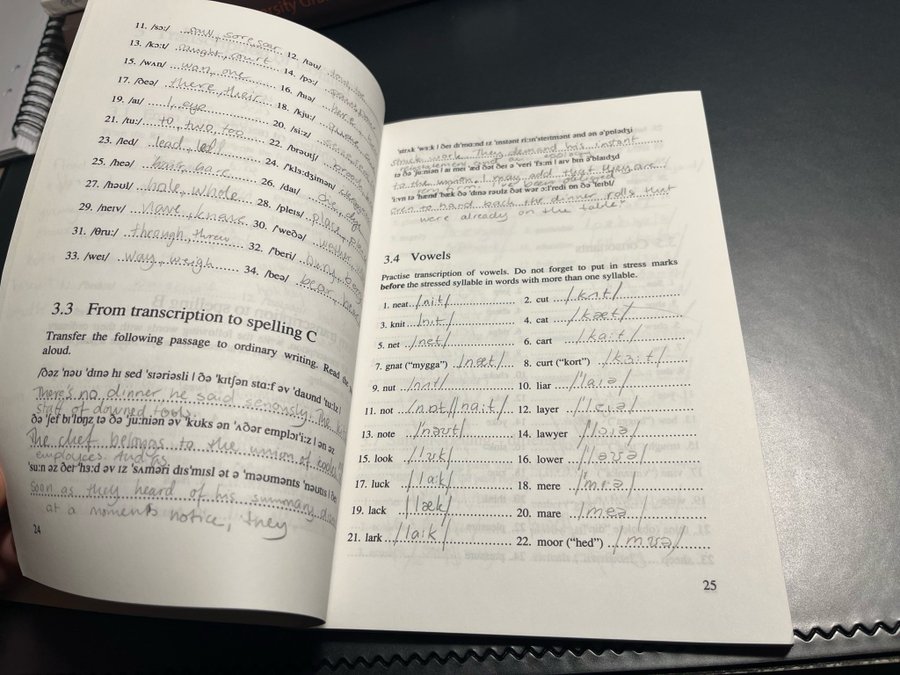 11. /sɔː/ saw, sore, soar 12. /təʊ/
13. /kɔːt/ caught, court 14. /pɔː/
15. /wʌn/ won, one 16. /hɪə/
17. /ðeə/ there, their 18. /kjuː/
19. /aɪ/ I, eye 20. /siːz/
21. /tuː/ to, two, too 22. /brəʊtʃ/
23. /led/ lead, led 24. /ˈklɜːdʒɪmən/
25. /heə/ hair, hare 26. /daɪ/ die, dye
27. /həʊl/ hole, whole 28. /pleɪs/ place
29. /neɪv/ nave, knave 30. /ˈweðə/
31. /θruː/ through, threw 32. /ˈberi/ bury
33. /weɪ/ way, weigh 34. /beə/ bear
3.3 From transcription to spelling C
Transfer the following passage to ordinary writing. Read the
aloud.
/ðəz ˈnəʊ ˈdɪnə hɪ sed ˈsɪəriəsli | ðə ˈkɪtʃən stɑːf əv ˈdaʊnd ˈtuːlz |
There's no dinner, he said seriously. The
staff of downed tools.
ðə ˈʃef bɪˈlɒŋz tə ðə ˈjuːniən əv ˈkʊks ən ˈʌðər emplɔɪˈiːz | ən əz
The chef belongs to the union of
employees. And as
ˈsuːn əz ðeɪ ˈhɜːd əv ɪz ˈsʌməri dɪsˈmɪsl ət ə ˈməʊmənts ˈnəʊtɪs | ðe
soon as they heard of his summary
at a moments notice, they
24
ˈstrʌk ˈwɜːk | ðeɪ dɪˈmɑːnd ɪz ˈɪnstənt riːɪnˈsteɪtmənt ənd ən əˈpɒlədʒi
struck work. They demand his instant
tə ðə ˈjuːniən | aɪ meɪ ˈæd ðət ðeɪ ə ˈveri ˈfɜːm | aɪv bɪn əˈblaɪdʒd
to the union. I may add that they are
ˈiːvn tə ˈhænd ˈbæk ðə ˈdɪnə rəʊlz ðət wər ɔːlˈredi ɒn ðə ˈteɪbl/
even to hand back the dinner rolls that
were already on the table"
3.4 Vowels
Practise transcription of vowels. Do not forget to put in stress marks
before the stressed syllable in words with more than one syllable.
1. neat /nit/ 2. cut /kʌt/
3. knit /nɪt/ 4. cat /kæt/
5. net /net/ 6. cart /kɑːt/
7. gnat (“mygga”) /næt/ 8. curt (“kort”) /kɜːt/
9. nut /nʌt/ 10. liar /ˈlaɪə/
11. not /nɒt//nɑːt/ 12. layer /ˈleɪə/
13. note /nəʊt/ 14. lawyer /ˈlɔɪə/
15. look /lʊk/ 16. lower /ˈləʊə/
17. luck /lʌk/ 18. mere /mɪə/
19. lack /læk/ 20. mare /meə/
21. lark /lɑːk/ 22. moor (“hed”) /mʊə/
25